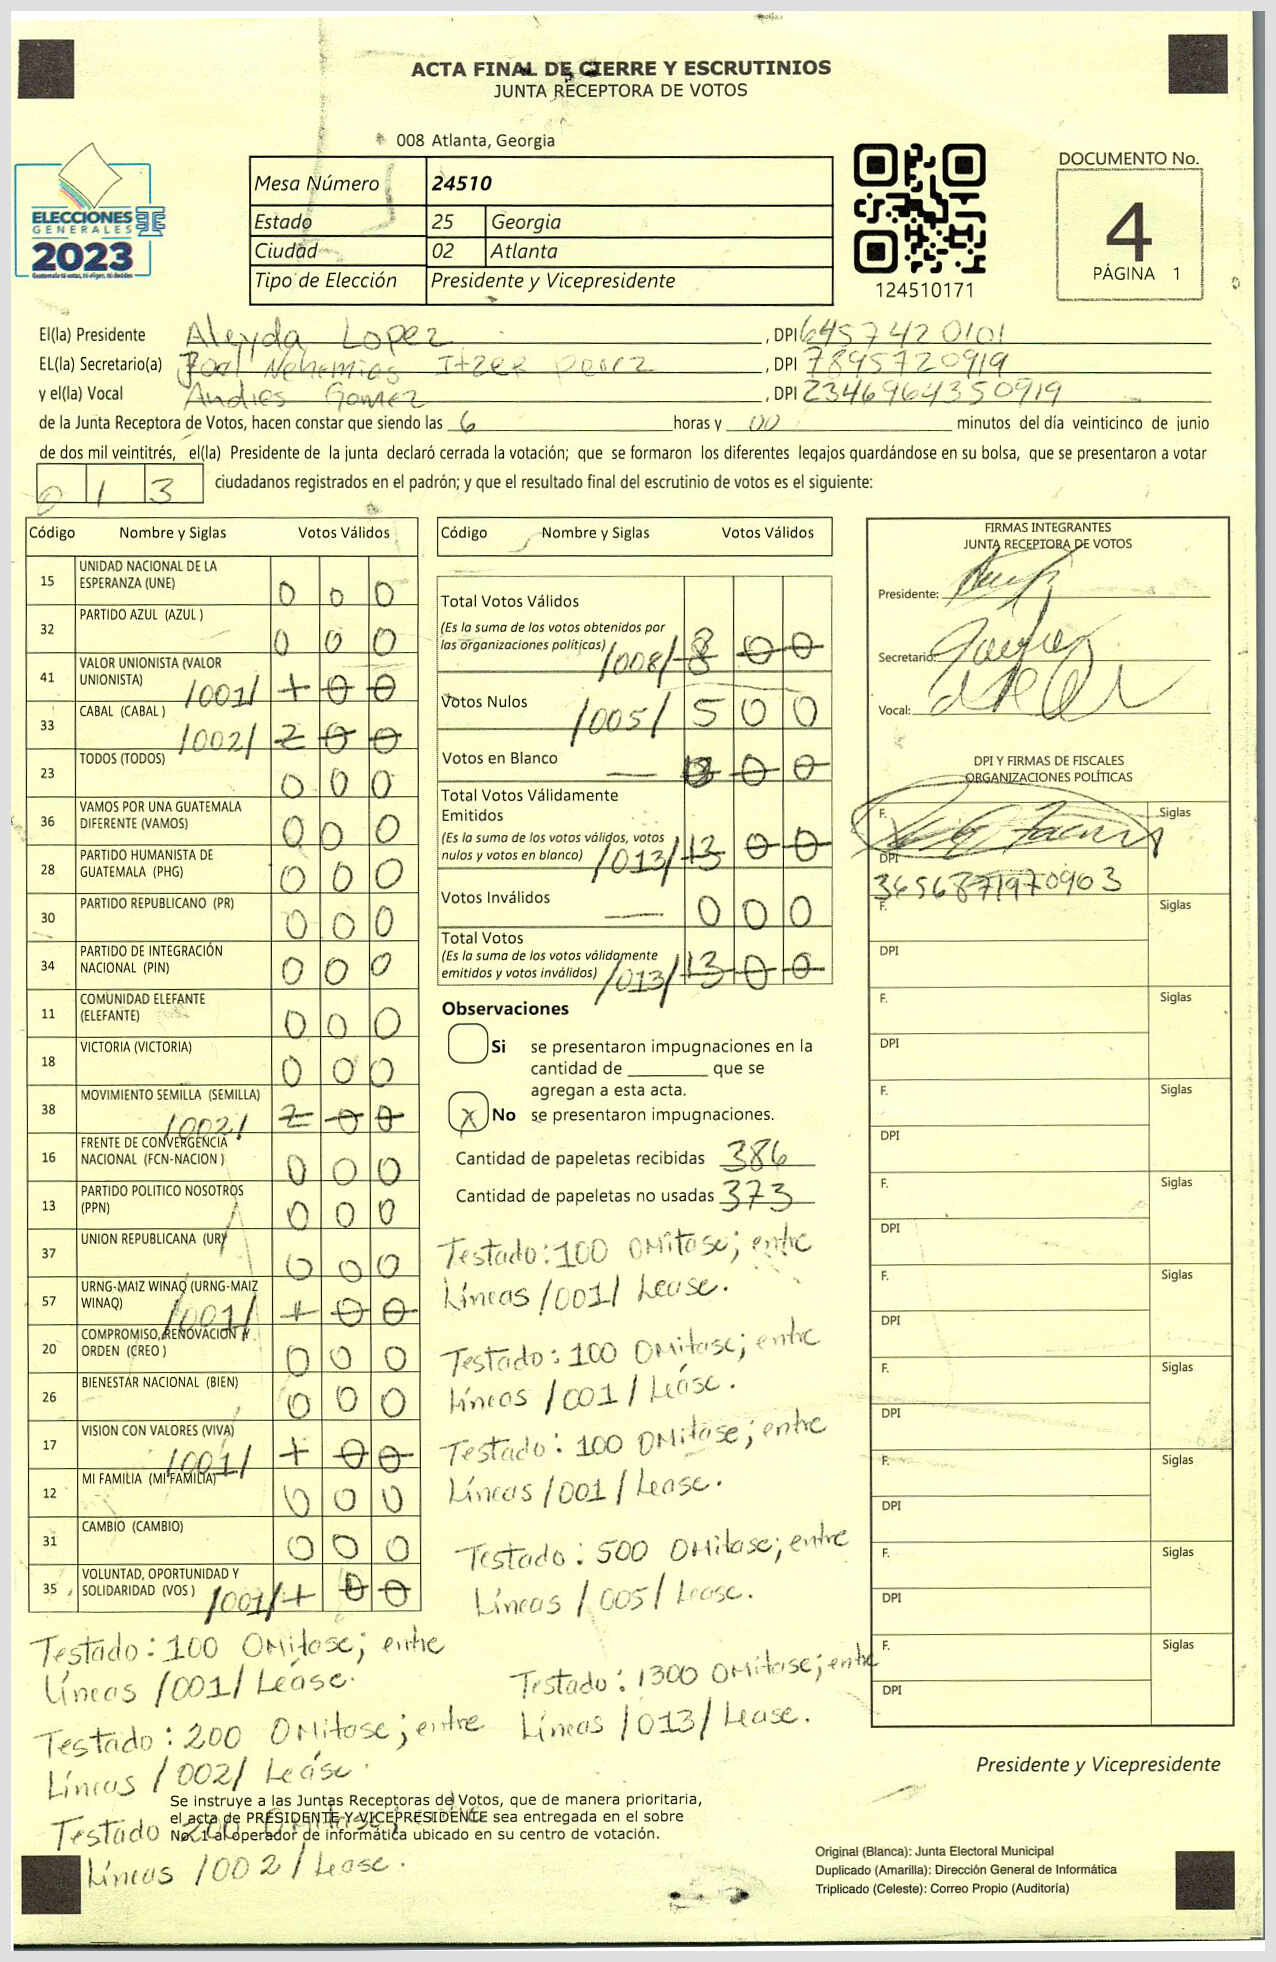 ACTA FINAL DE CIERRE Y ESCRUTINIOS
JUNTA RECEPTORA DE VOTOS
008 Atlanta, Georgia
ELECCIONES
GENERALES
2023
Mesa Número 24510
Estado 25 Georgia
Ciudad 02 Atlanta
Tipo de Elección Presidente y Vicepresidente
124510171
DOCUMENTO No.
4
PÁGINA 1
El(la) Presidente Aleyda Lopez, DPI 6457420101
EL(la) Secretario(a) Joel Nehemias Itzep Perez, DPI 7895720919
y el(la) Vocal Andres Gomez, DPI 2346964350919
de la Junta Receptora de Votos, hacen constar que siendo las 6 horas y 00 minutos del día veinticinco de junio
de dos mil veintitrés, el(la) Presidente de la junta declaró cerrada la votación; que se formaron los diferentes legajos quardándose en su bolsa, que se presentaron a votar
0 1 3 ciudadanos registrados en el padrón; y que el resultado final del escrutinio de votos es el siguiente:
Código Nombre y Siglas Votos Válidos
15 UNIDAD NACIONAL DE LA
ESPERANZA (UNE) 0 0 0
32 PARTIDO AZUL (AZUL ) 0 0 0
41 VALOR UNIONISTA (VALOR
UNIONISTA) /001/ 1 0 0
33 CABAL (CABAL ) /002/ 2 0 0
23 TODOS (TODOS) 0 0 0
36 VAMOS POR UNA GUATEMALA
DIFERENTE (VAMOS) 0 0 0
28 PARTIDO HUMANISTA DE
GUATEMALA (PHG) 0 0 0
30 PARTIDO REPUBLICANO (PR) 0 0 0
34 PARTIDO DE INTEGRACIÓN
NACIONAL (PIN) 0 0 0
11 COMUNIDAD ELEFANTE
(ELEFANTE) 0 0 0
18 VICTORIA (VICTORIA) 0 0 0
38 MOVIMIENTO SEMILLA (SEMILLA) /002/ 2 0 0
16 FRENTE DE CONVERGENCIA
NACIONAL (FCN-NACION ) 0 0 0
13 PARTIDO POLITICO NOSOTROS
(PPN) 0 0 0
37 UNION REPUBLICANA (UR) 0 0 0
57 URNG-MAIZ WINAQ (URNG-MAIZ
WINAQ) /001/ 1 0 0
20 COMPROMISO, RENOVACION Y
ORDEN (CREO ) 0 0 0
26 BIENESTAR NACIONAL (BIEN) 0 0 0
17 VISION CON VALORES (VIVA) /001/ 1 0 0
12 MI FAMILIA (MI FAMILIA) 0 0 0
31 CAMBIO (CAMBIO) 0 0 0
35 VOLUNTAD, OPORTUNIDAD Y
SOLIDARIDAD (VOS ) /001/ 1 0 0
Testado: 100 OMítase; entre
Líneas /001/ Léase.
Testado: 200 OMítase; entre
Líneas /002/ Léase.
Testado 200 OMítase; entre
Líneas /002/ Lease.
Código Nombre y Siglas Votos Válidos
Total Votos Válidos
(Es la suma de los votos obtenidos por
las organizaciones políticas) /008/ 8 0 0
Votos Nulos /005/ 5 0 0
Votos en Blanco — 0 0
Total Votos Válidamente
Emitidos
(Es la suma de los votos válidos, votos
nulos y votos en blanco) /013/ 13 0 0
Votos Inválidos — 0 0 0
Total Votos
(Es la suma de los votos válidamente
emitidos y votos inválidos) /013/ 13 0 0
Observaciones
Si se presentaron impugnaciones en la
cantidad de ________ que se
agregan a esta acta.
X No se presentaron impugnaciones.
Cantidad de papeletas recibidas 386
Cantidad de papeletas no usadas 373
Testado: 100 OMítase; entre
Líneas /001/ Lease.
Testado: 100 OMítase; entre
Líneas /001/ Léase.
Testado: 100 OMítase; entre
Líneas /001/ Lease.
Testado: 500 OMitase; entre
Líneas /005/ Lease.
Testado: 1300 OMitase; entre
Líneas /013/ Lease.
FIRMAS INTEGRANTES
JUNTA RECEPTORA DE VOTOS
Presidente:
Secretario:
Vocal:
DPI Y FIRMAS DE FISCALES
ORGANIZACIONES POLÍTICAS
F. Siglas
DPI
3656871970903
F. Siglas
DPI
F. Siglas
DPI
F. Siglas
DPI
F. Siglas
DPI
F. Siglas
DPI
F. Siglas
DPI
F. Siglas
DPI
F. Siglas
DPI
F. Siglas
DPI
Presidente y Vicepresidente
Se instruye a las Juntas Receptoras de Votos, que de manera prioritaria,
el acta de PRESIDENTE Y VICEPRESIDENTE sea entregada en el sobre
No. 1 al operador de informática ubicado en su centro de votación.
Original (Blanca): Junta Electoral Municipal
Duplicado (Amarilla): Dirección General de Informática
Triplicado (Celeste): Correo Propio (Auditoría)